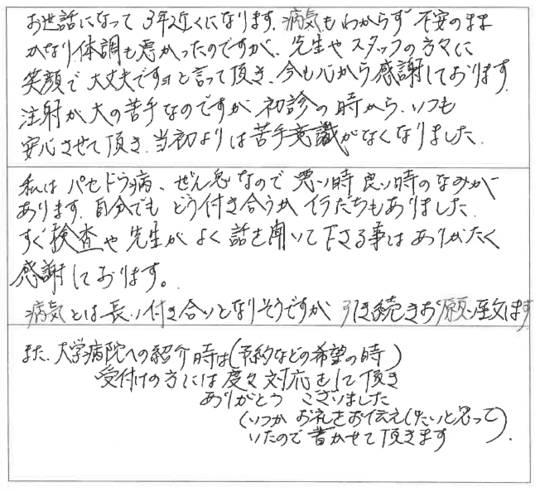 お世話になって3年近くになります。病気もわからず不安のまま
かなり体調も悪かったのですが、先生やスタッフの方々に
笑顔で大丈夫ですョと言って頂き、今も心から感謝しております。
注射が大の苦手なのですが初診の時から、いつも
安心させて頂き、当初よりは苦手意識がなくなりました。
私はバセドウ病、ぜん息なので悪い時良い時のなみが
あります。自分でもどう付き合うかイラだちもありました。
すぐ検査や先生がよく話を聞いて下さる事はありがたく
感謝しております。
病気とは長い付き合いとなりそうですが引き続きお願い致します
また、大学病院への紹介時は(予約などの希望の時)
受付けの方には度々対応をして頂き
ありがとうございました
(いつかお礼をお伝えしたいと思って
いたので書かせて頂きます)。